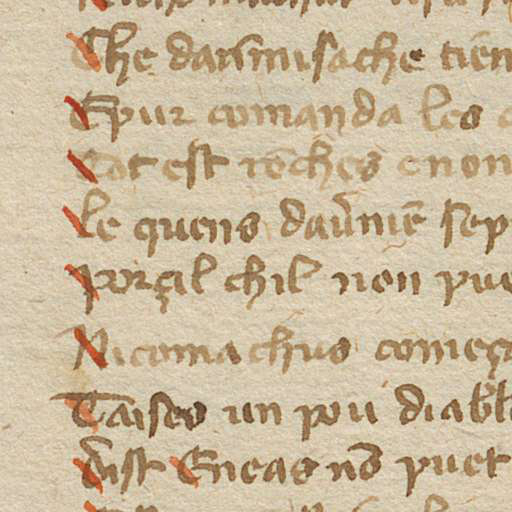 Che darsmisache tiēn
Epur comanda les
Tot est rēches enon
Le quens dauĩnē sep
porçil chil non pue
Nicomachus comēça
Taises un pou diabl
dist Eneas nō puet